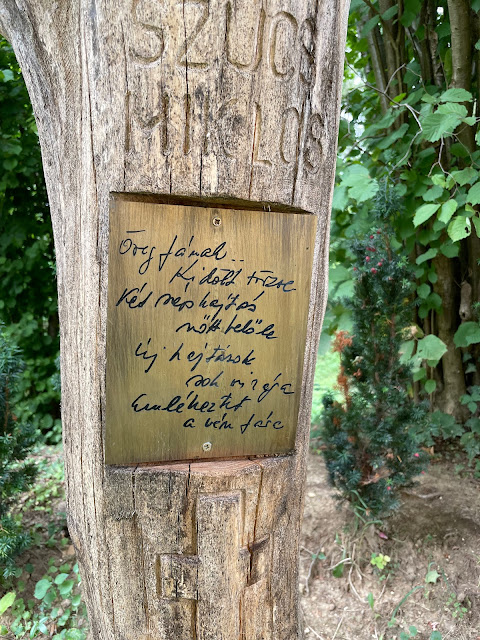 SZŰCS
MIKLÓS
Öreg fának..
Kidőlt törzse
Két szép hajtás
nőtt belőle
Új hajtások
sok virága
Emlékeztet
a vén fára